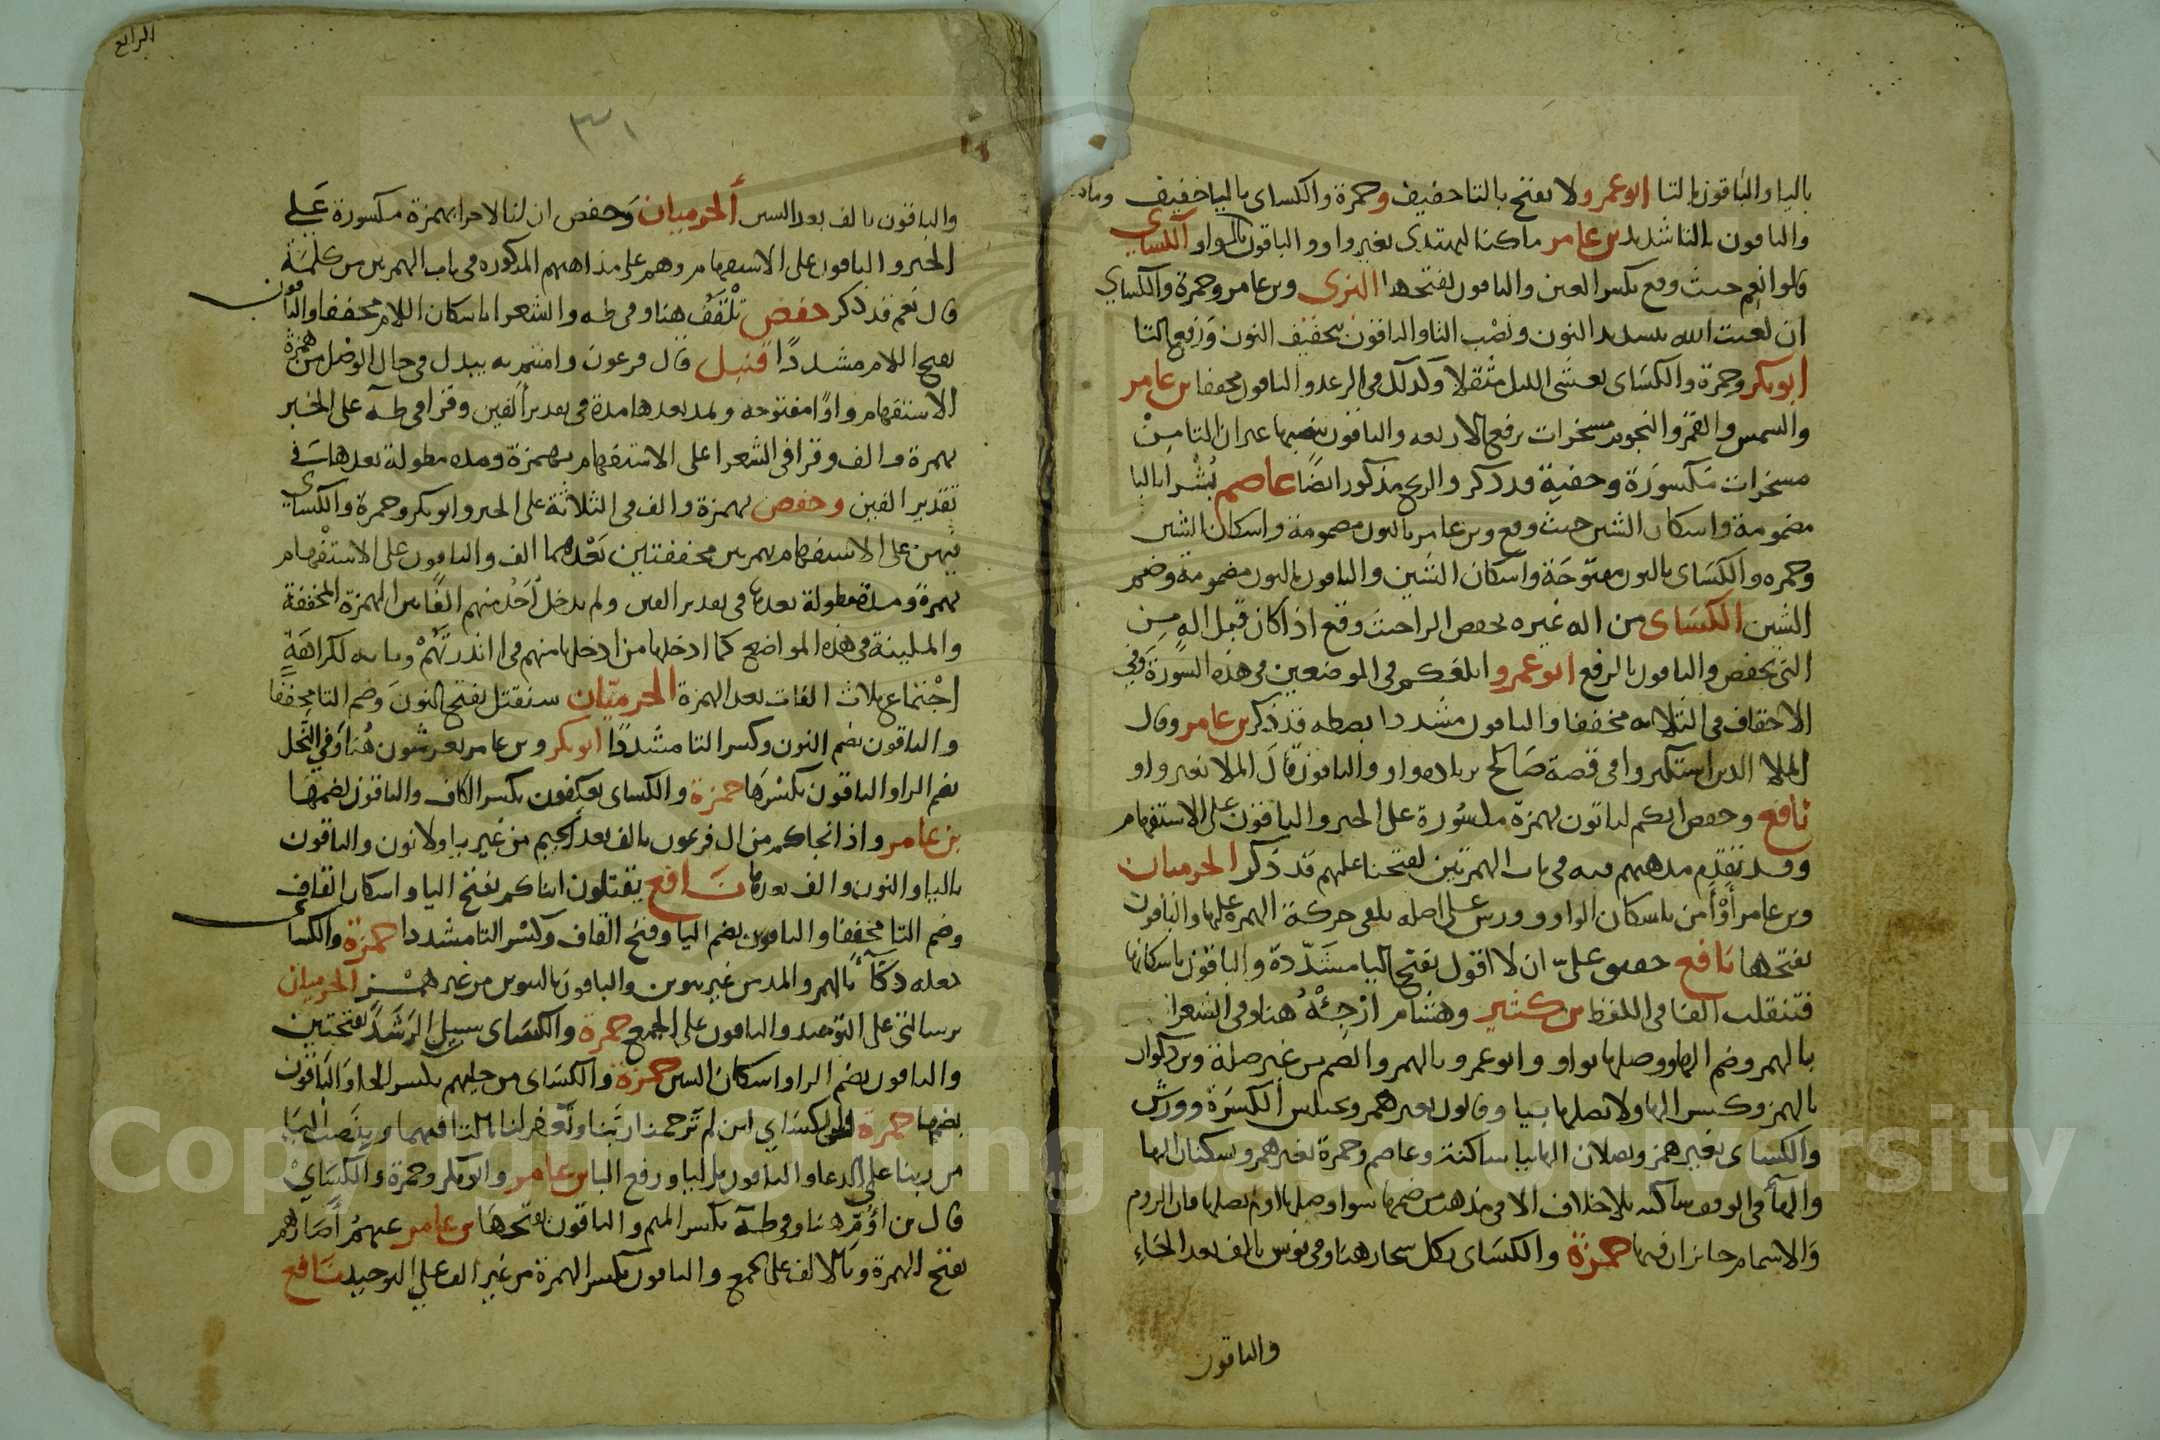 باليا والباقون بالتا ابو عمرو لا يفتح بالتا خفيف وحمزة والكساى باليا خفيف
والباقون بالتا شديد بن عامر ما كنا لنهتدى بغير واو والباقون بالواو الكساى
قالوا نعم حيث وقع بكسر العين والباقون بفتحها البزى وبن عامر وحمزة والكساي
ان لعنت الله بتشديد النون ونصْب التا والباقون بتخفيف النون وَرَفع التا
ابو بكر وحمزة والكسَاى يغشى الليل مثقلا وكذلك فى الرعد والباقون مخففا بن عامر
والشمس والقمر والنجوم مسخرات برفع الاربعه والباقون بنصبها غير ان التا مِنْ
مسخرات مكسورَة وخفية قد ذكر والريح مذكور ايضًا عاصم بُشْرا بالبا
مضمومة واسكان الشين حيث وقع وبن عامر بالنون مضمومة واسكان الشين
وحمزه والكسَاى بالنون مفتوحَة واسكان الشين والباقون بالنون مضمومة وضم
الشين الكسَاى من اله غيره بخفض الراحيث وقع اذا كان قبل اله مِن
التى تخفض والباقون بالرفع ابو عمرو ابلغكم فى الموضعين فى هذه السُورَة وفى
الاحقاف فى الثلاثه مخففا والباقون مشددا بصطه قد ذكر بن عامر وقال
الملا الذين استكبروا فى قصة صَالح بزيادة واو والباقون قالَ الملا بغير واو
نافع وحفص انكم لتاتون بهمزة مكسُورة على الخبر والباقون على الاستفهام
وقد تقدم مذهبهم فيه فى باب الهمزتين لفتحنا عليهم قد ذكر الحرميان
وبن عامر أوْ أَمن باسكان الواو وورش على اصله يلقى حركة الهمزة عليها والباقون
بفتحها نافع حقيق علىّ ان لا اقول بفتح اليا مشدّدة والباقون باسكانها
فتنقلب الفا فى اللفظ بن كثير وهشام ارْجِئْهُ هنا وفى الشعرا
بالهمز وضم الها ووصلها بواو وابو عمرو بالهمز والضم من غير صلة وبن ذكوان
بالهمز وكسر الها ولا يصلها بيا وقالون بغير همز وبختلس الكسَرة وورش
والكساى بغير همز ويصلان الها بيا ساكنة وعاصم وحمزة بغير همز وبسكنان الها
والهآ فى الوقف ساكنه بلا خلاف الا فى مذهب من ضمها سوا وصلها او لم يصلها فان الروم
وَالاشمام جائزان فيها حمزة والكسَاى بكل سحار هنا وفى يونس بالف بعد الحَاءِ
والباقون
الرابع
٣١
والباقون بالف بعد السين الحرميان وَحفص ان لنا لاجرا بهمزة مكسورة عَلى
الخبر والباقون على الاستفهام وهم على مذاهبهم المذكوره فى باب الهمزتين من كلمَة
قال نعم قد ذكر حفص تلْقَفُ هنا وفى طه والشعرا باسكان اللام مخففا والباقون
بفتح اللام مشددًا قنبل قال فرعون وامنتم به يبدل فى حال الوصْل من همزة
الاستفهام واوًا مفتوحه ويمد بعدها مدة فى تقدير الفين وقرا فى طه على الخبر
بهمزة والف وقرا فى الشعرا على الاستفهام بهمزة ومده مطولة بعدها فى
تقدير الفين وحفص بهمزة والف فى الثلاثة على الخبر وابو بكر وحمزة والكساى
فيهن على الاستفهام بهمزتين محففتين بَعْدهما الف والباقون على الاستفْهام
بهمزة ومدة مطولة بعدها فى تقدير الفين ولم يدخل أحَدٌ منهم الفًا بين الهمزة المخففة
والملينة فى هذه المواضع كما ادخلها من ادخلها منهم فى اانذرتَهُمْ وبابه لكراهَةِ
اجْتماع ثلاث الفات بعد الهمزة الحرميّان سنقتل بفتح النونَ وضم التا مخففًا
والباقون بضم النون وكسر التا مشددًا ابو بكر وبن عامر يعرشون هُنا وَفى النَّحل
بضم الرا والباقون بكسْرهَا حمزة والكساى يعكفون بكسر الكاف والباقون بضمهَا
بن عامر واذ انجاكم من ال فرعون بالف بعد الجيم من غير يا ولا نون والباقون
باليا والنون والف بعدها نَافع يقتلون ابناكم بفتح اليا واسكان القاف
وضم التا مخففا والباقون بضم اليا وفتح القاف وكسْر التا مشددا حمزة والكسا
جعله دَكّآءَ بالهمز والمد من غير تنوين والباقون بالتنوين من غير همْز الحرميان
برسالتى على التوحيد والباقون على الجمع حمزة والكسَاى سبيل الرَشَد بفتحتين
والباقون بضم الرا واسكان الشين حمزة والكسَاى من حليهم بكسر الحا وَالبَاقون
بضمها حمزة والكسَاي لئن لم تَرحمنا رَبَّنا وتَغفر لنا بالتا فيهما وبنَصب البَا
من ربنا على الدعا والباقون باليا ورفع البا بن عامر وابو بكر وحمزة وَالكسَايْ
قال بن اؤمّ هنا وفى طه بكسر الميم والباقون بفتحهَا بن عامر عنهمُ أَصَارهم
بفتح الهمزة وَبالالف على الجمع والباقون بكسر الهمزة من غير الف علي التوحيد نَافع
Copyright © King Saud University